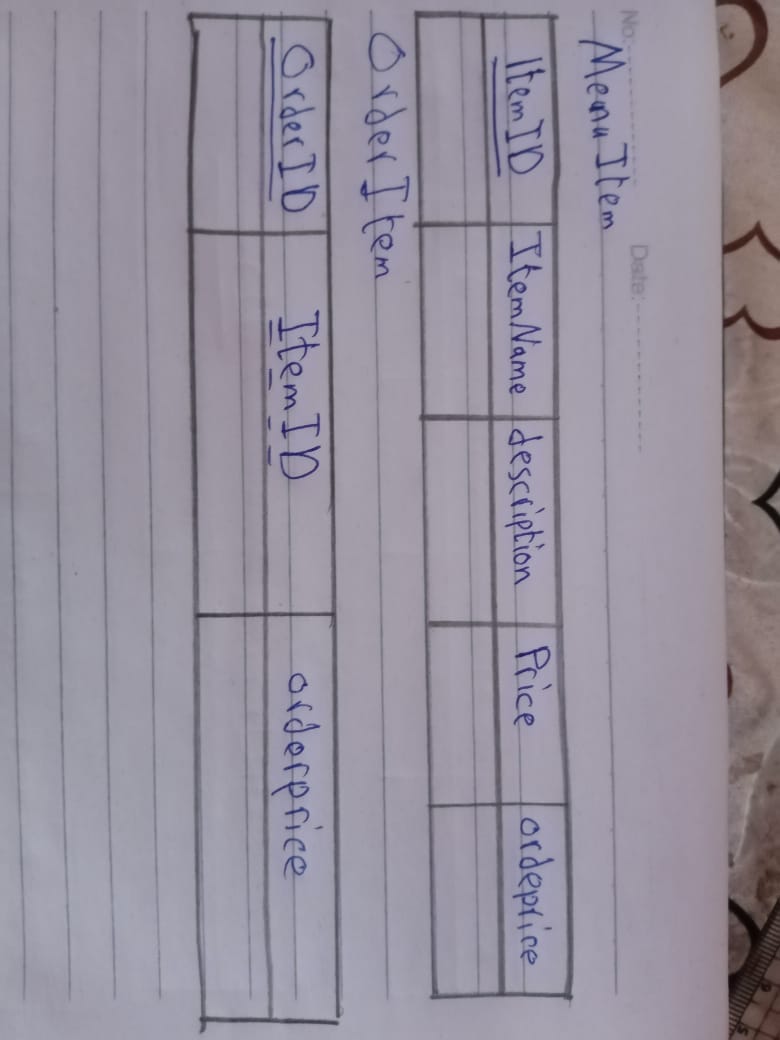 No: Date:
MenuItem
ItemID ItemName description Price ordeprice
OrderItem
OrderID ItemID orderprice